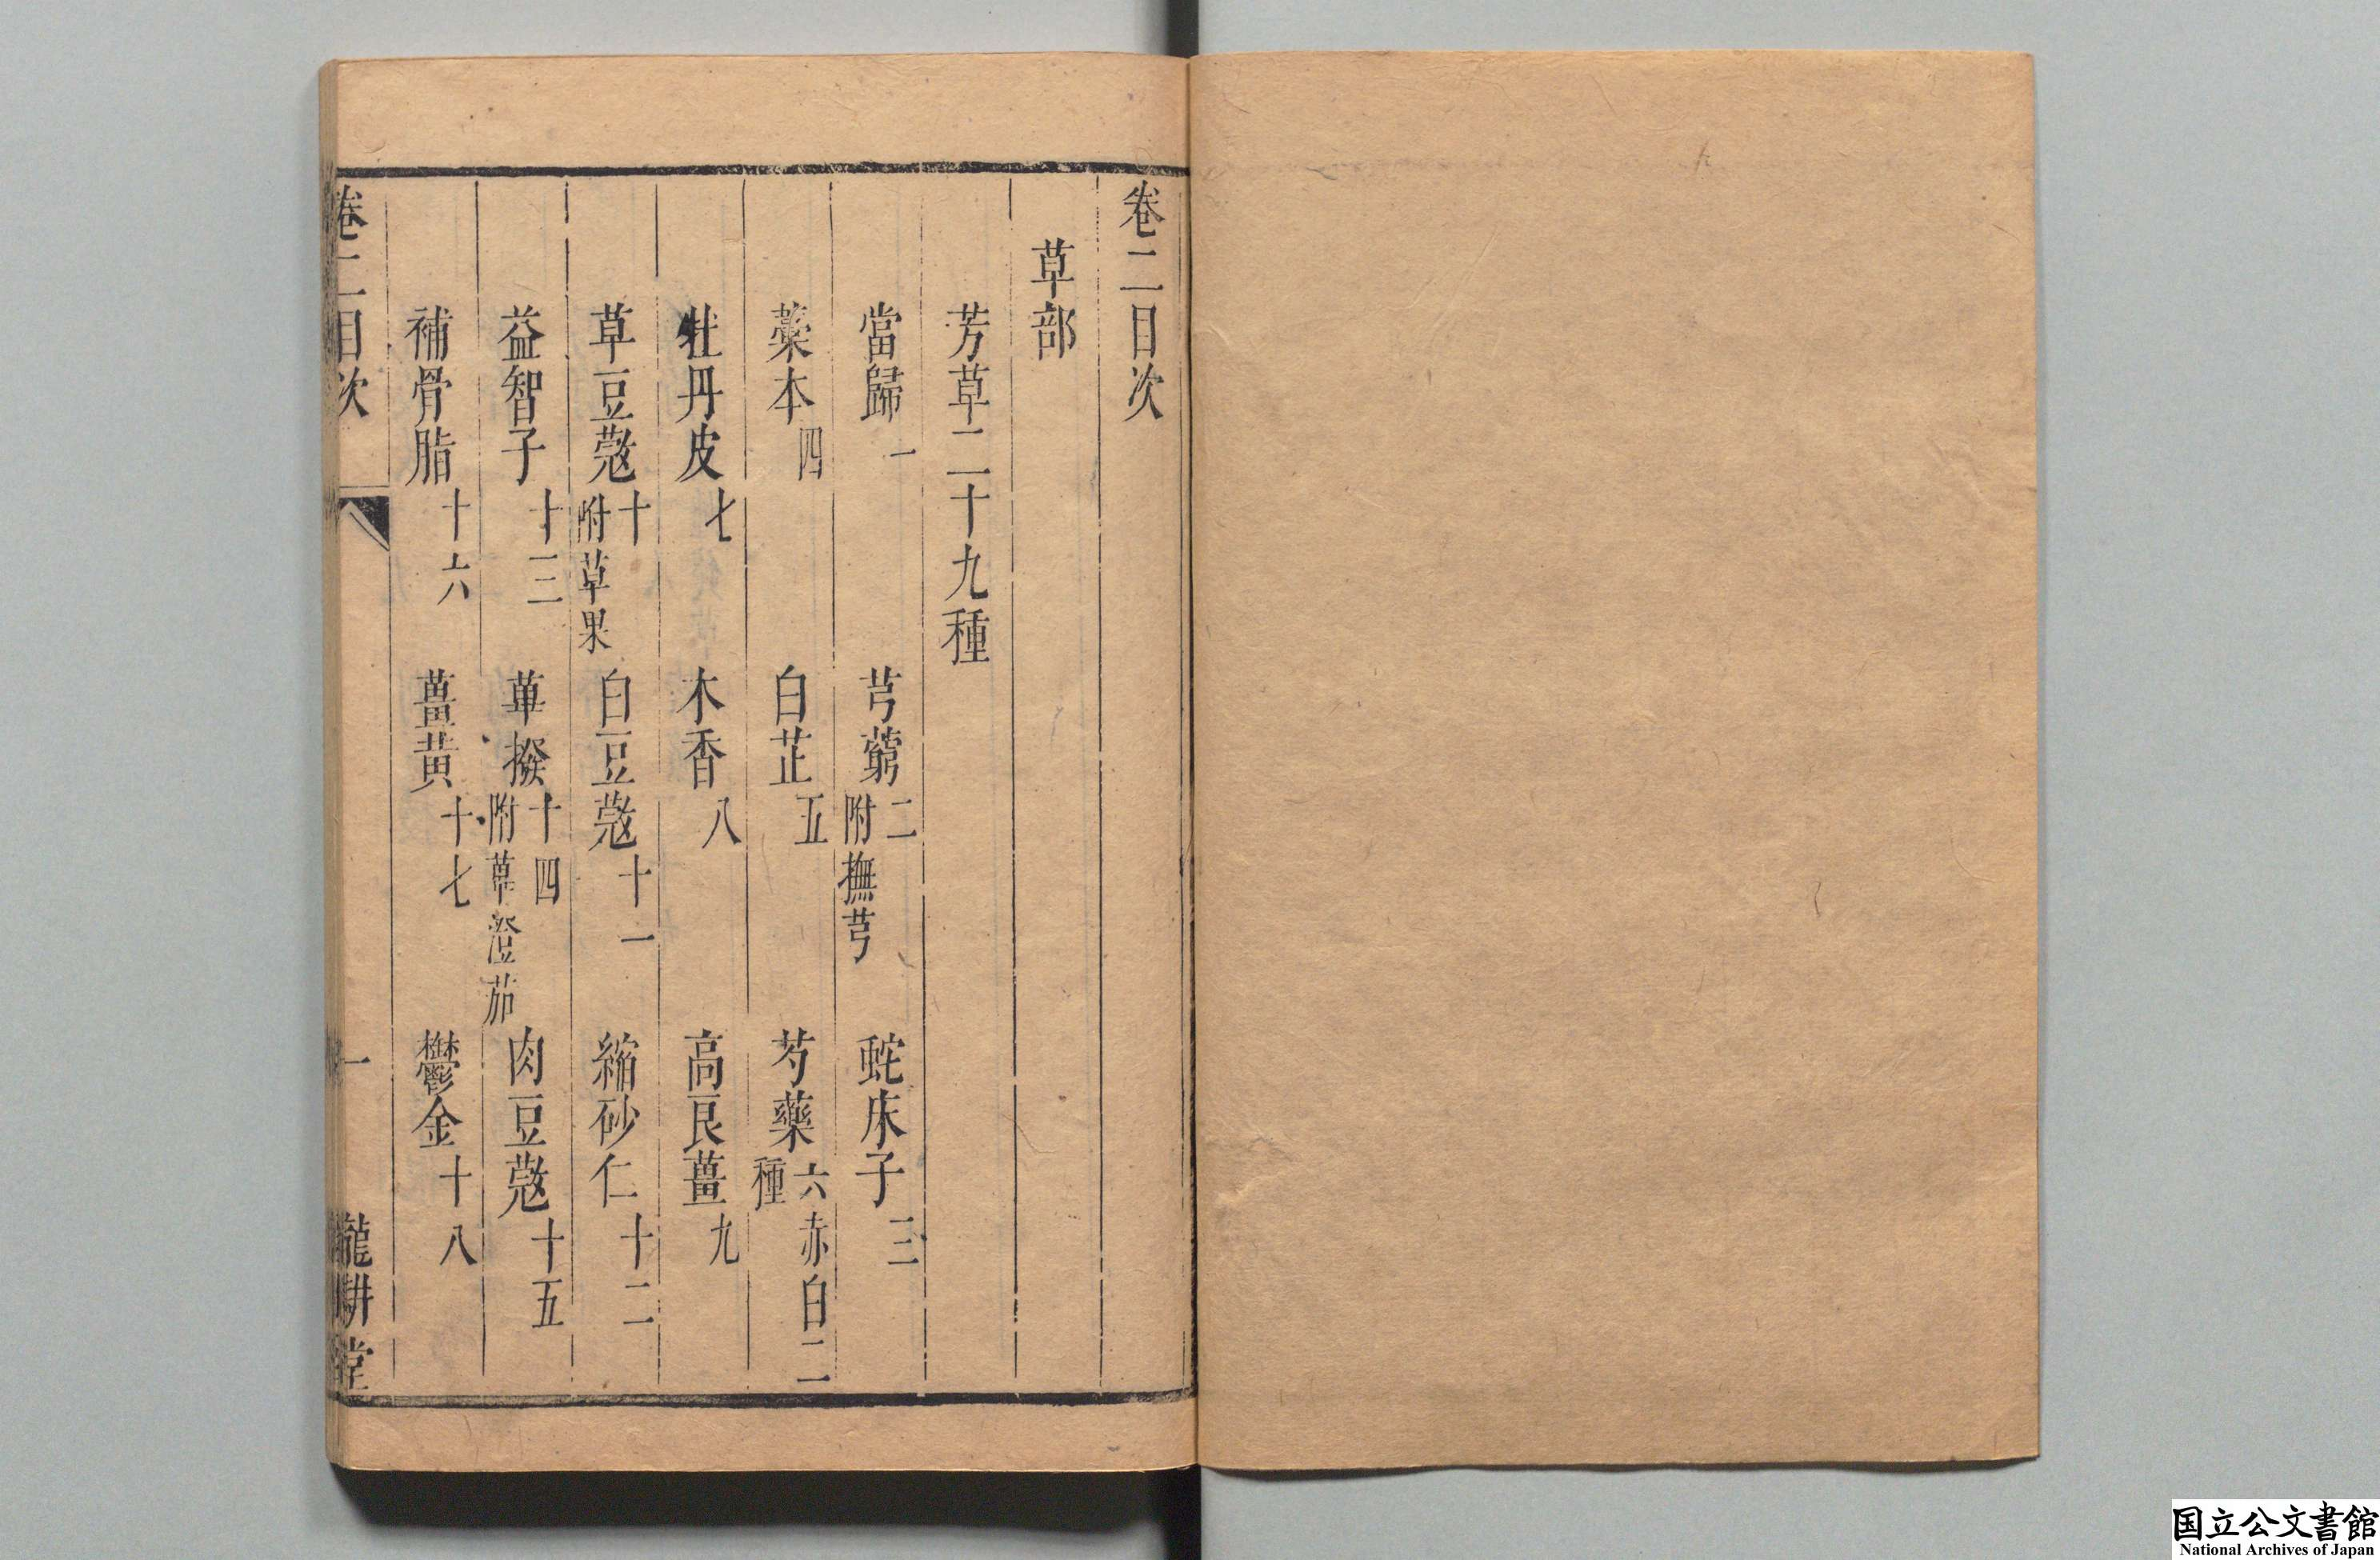 卷二目次
草部
芳草二十九種
當歸一 芎藭二附撫芎 蛇床子三
藁本四 白芷五 芍藥六赤白二種
牡丹皮七 木香八 高良薑九
草豆蔻十附草果 白豆蔻十一 縮砂仁十二
益智子十三 蓽撥十四附蓽澄茄 肉豆蔻十五
補骨脂十六 薑黃十七 鬱金十八
卷二目次 一 龍耕堂
国立公文書館
National Archives of Japan